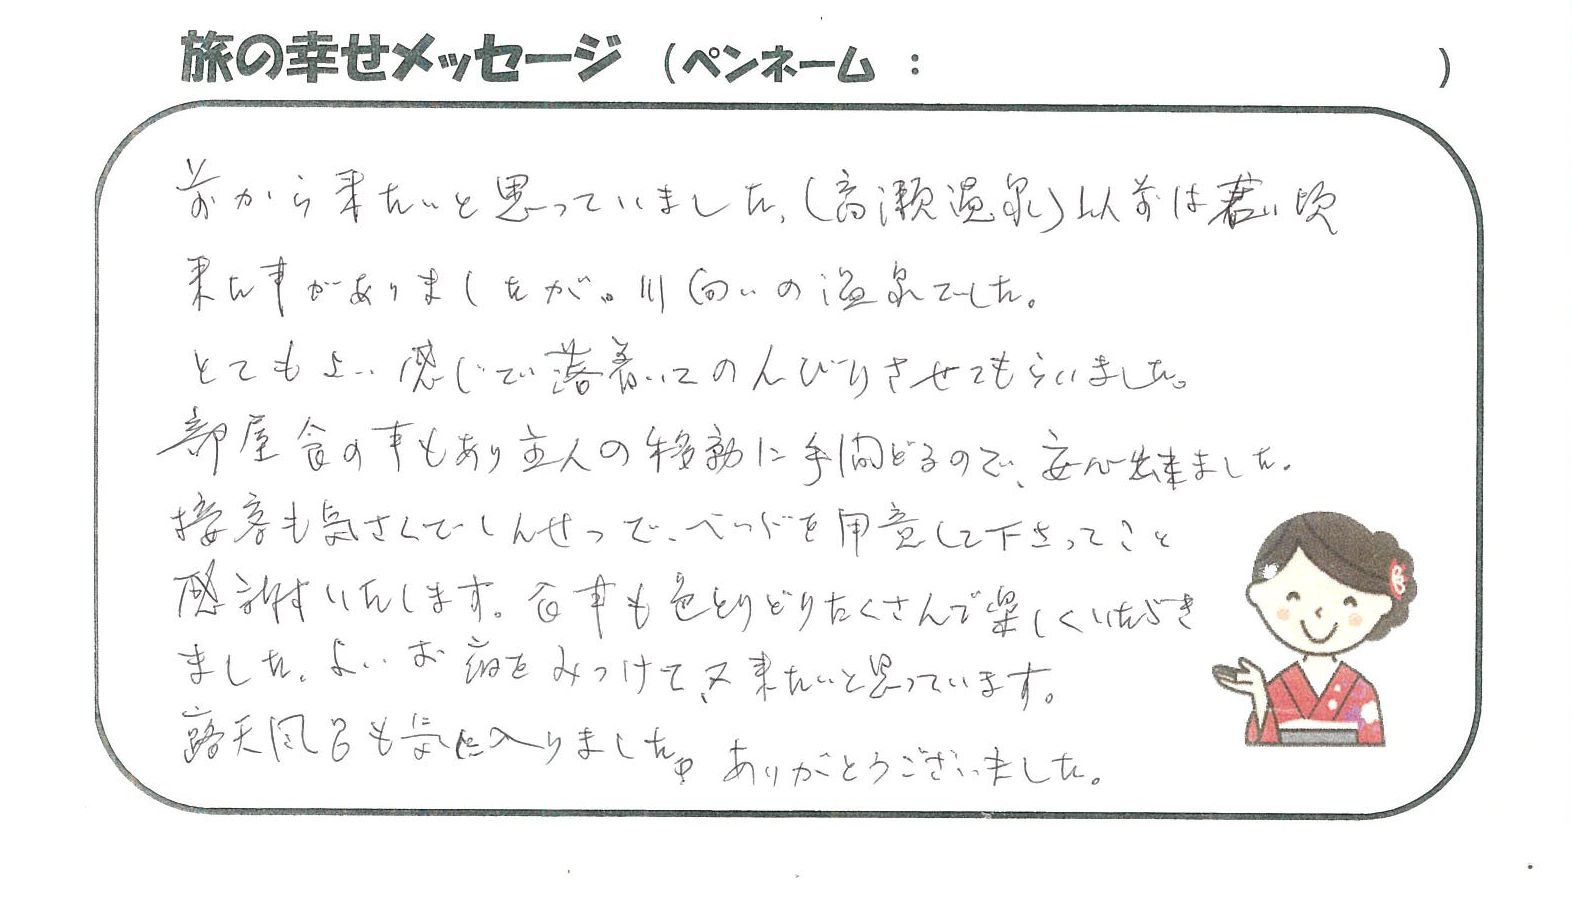 旅の幸せメッセージ (ペンネーム : )
前から来たいと思っていました、(高瀬温泉)以前は若い頃
来た事がありましたが。川向いの温泉でした。
とてもよい感じで落着いてのんびりさせてもらいました。
部屋食の事もあり主人の移動に手間どるので、安心出来ました。
接客も気さくでしんせつで、ベッドを用意して下さってこと
感謝いたします。食事も色とりどりたくさんで楽しくいただき
ました。よいお宿をみつけて、又来たいと思っています。
露天風呂も気に入りました。ありがとうございました。